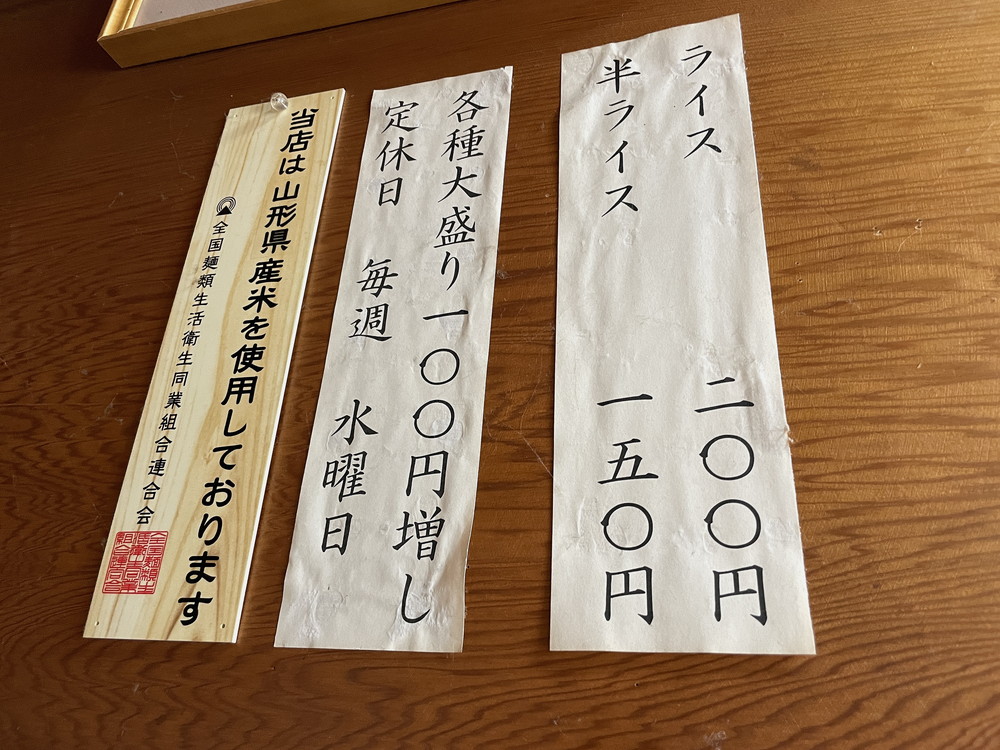 ライス 二〇〇円
半ライス 一五〇円
各種大盛り一〇〇円増し
定休日 毎週 水曜日
当店は山形県産米を使用しております
全国麺類生活衛生同業組合連合会